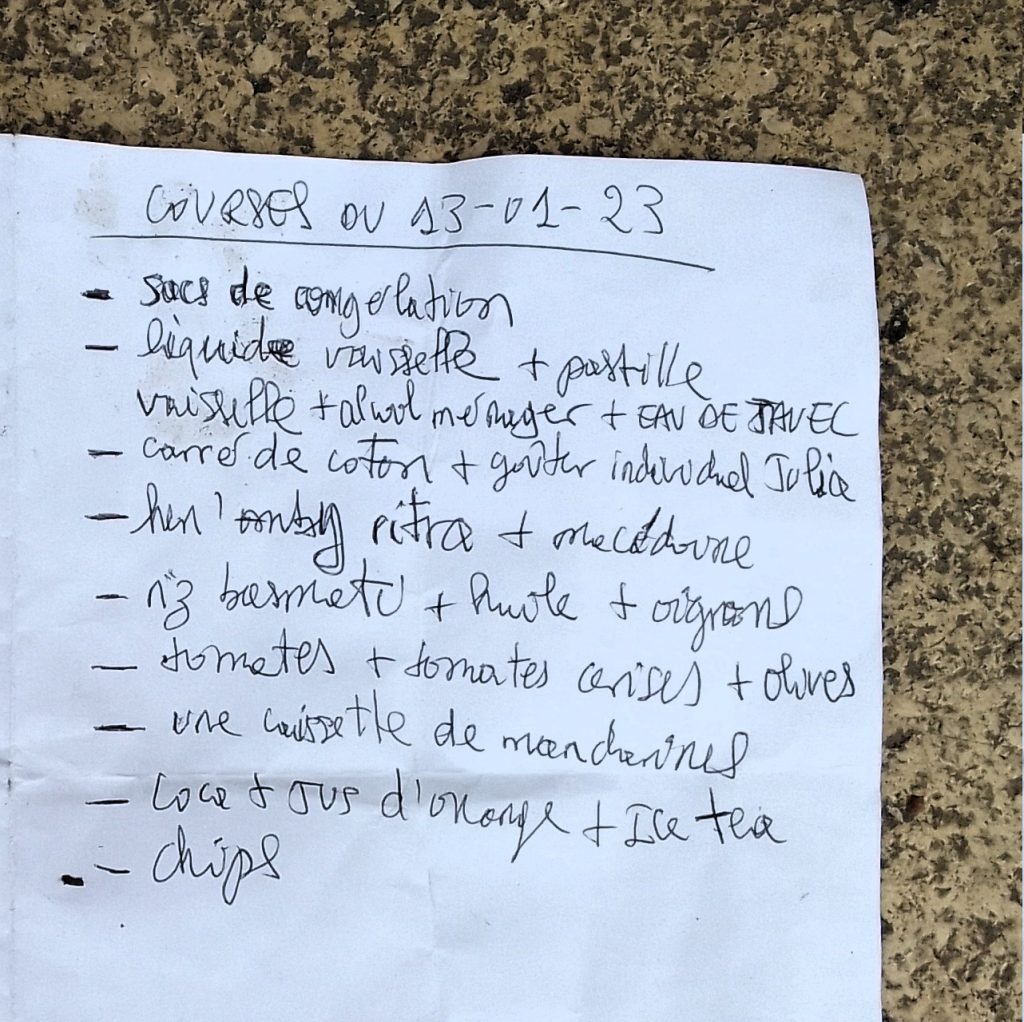 COURSES DU 13-01-23
- sacs de congelation
- liquide vaisselle + pastille
vaisselle + alcool ménager + EAU DE JAVEL
- carré de coton + goûter individuel Julia
- pitra + macédoine
- riz basmati + huile + oignons
- tomates + tomates cerises + olives
- une caissette de mandarines
- Coca + JUS d'orange + Ice tea
- chips